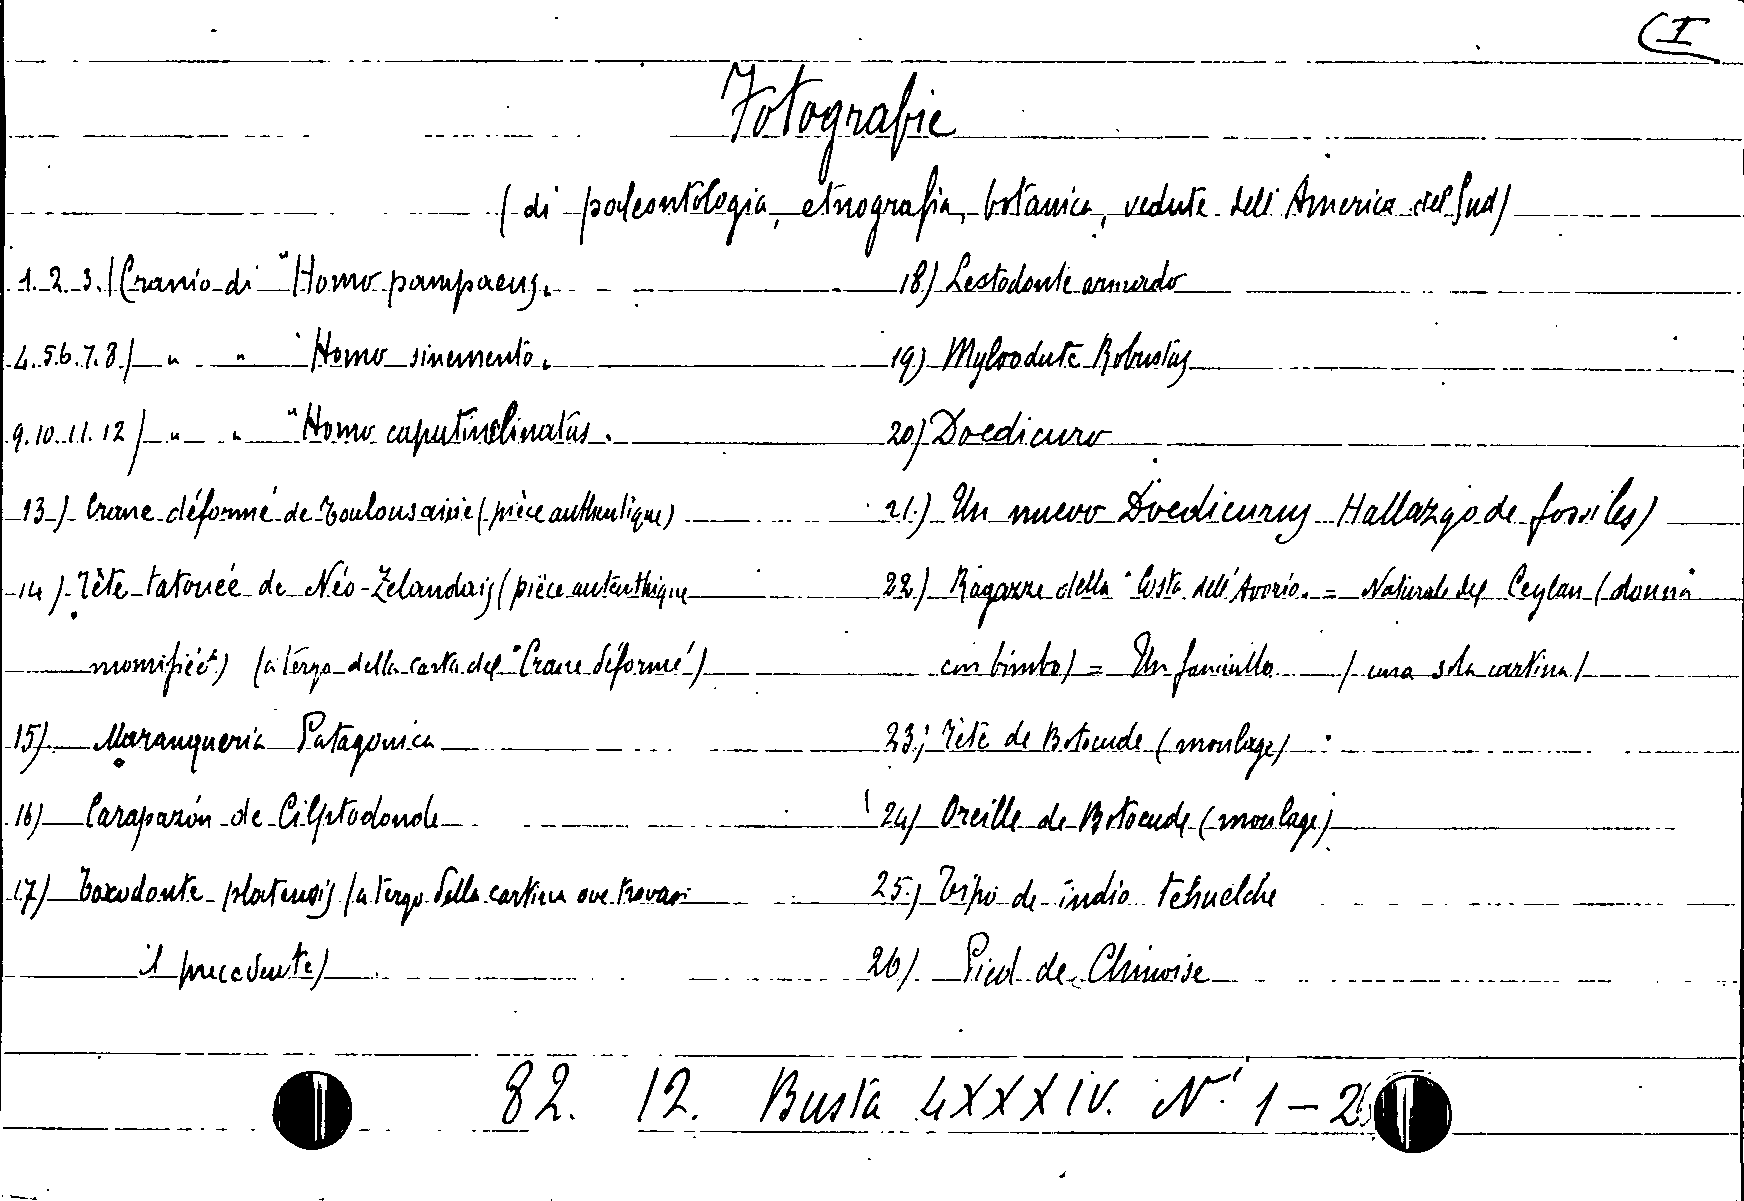 (I
Fotografie
(di paleontologia, etnografia, botanica, vedute dell'America del Sud)
1. 2. 3.) Cranio di "Homo pampaeus.
4. 5. 6. 7. 8) " " Homo sinemento.
9. 10. 11. 12) " " "Homo caputinclinatus.
13) Crane déformé de Toulousaine (pièce authentique)
14) Tête tatouée de Néo-Zelandais (pièce autenthique
momifiée") (a tergo della carta del "Crane déformé")
15) Maranqueria Patagonica
16) Carapazón de Cilptodonde
17) Toxodonte platensis (a tergo della cartina ove trovasi
il precedente)
18) Lestodonte armardo
19) Myloodute Robustus
20) Doedicuro
21.) Un nuevo Doedicurus Hallazgo de fossiles)
22.) Ragazze della "Costa dell'Avorio. = Naturale del Ceylan (donna
con bimbo) = Un fanciullo (una sola cartina)
23.) Tête de Botocude (moulage)
24) Oreille de Botocude (moulage)
25.) Tipo de indio tehuelche
26). Pied de Chinoise
82. 12. Busta LXXXIV. N.i 1 - 26